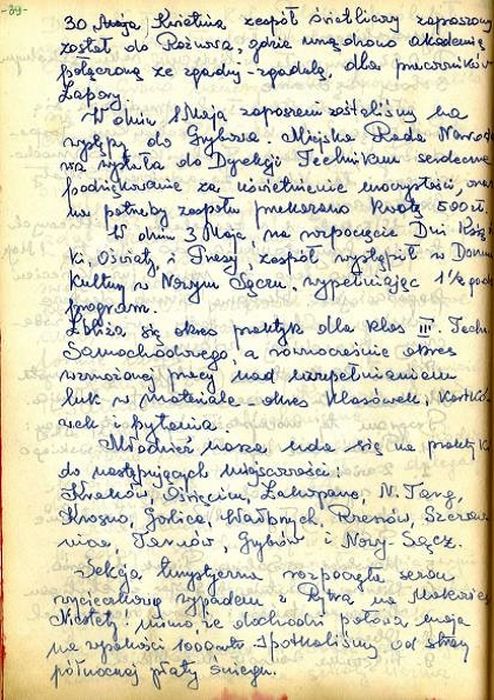 -39-
30 Maja Kwietnia zespół świetlicowy zaproszony
został do Rożnowa, gdzie urządzono akademię
połączoną ze zgaduj-zgadulą, dla pracowników
Zapory.
W dniu 1 Maja zaproszeni zostaliśmy na
występ do Grybowa. Miejska Rada Narodo
wa wysłała do Dyrekcji Technikum serdeczne
podziękowanie za uświetnienie uroczystości, oraz
na potrzeby zespołu przekazano kwotę 500 zł.
W dniu 3 Maja, na rozpoczęcie Dni Książ
ki, Oświaty, i Prasy, zespół wystąpił w Domu
Kultury w Nowym Sączu, wypełniając 1½ godz
program.
Zbliża się okres praktyk dla klas III. Techn.
Samochodowego, a równocześnie okres
wzmożonej pracy nad uzupełnianiem
luk w materiale - okres klasówek, kartkó
wek i pytania.
Młodzież nasza uda się na praktyk
do następujących miejscowości:
Kraków, Oświęcim, Zakopane, N. Targ,
Krosno, Gorlice, Wałbrzych, Rzeszów, Szczaw
nica, Tarnów, Grybów i Nowy-Sącz.
Sekcja turystyczna rozpoczęła sezon
wycieczkowy wypadem z Rytra na Makowicę
Niestety mimo, że dochodzi połowa maja
na wysokości 1000 mtr. spotkaliśmy od strony
północnej płaty śniegu.